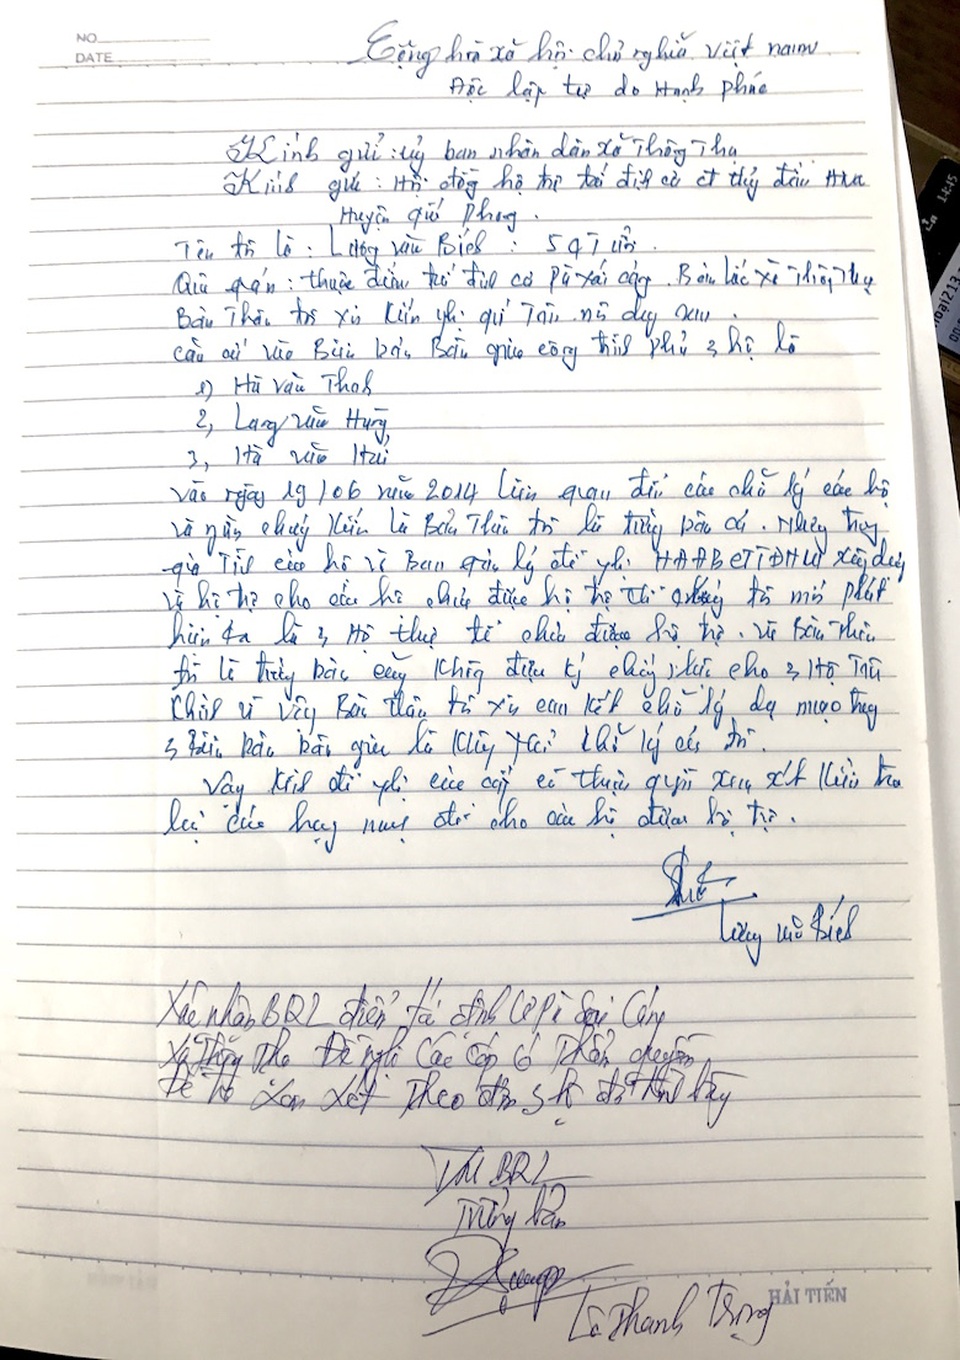 NO
DATE
Cộng hòa xã hội chủ nghĩa việt nam
Độc lập tự do Hạnh phúc
Kính gửi: ủy ban nhân dân xã Thông Thụ
Kính gửi: Hội đồng hỗ trợ tái định cư
Huyện quế phong.
Tên tôi là: Lương văn Biếch: 59 Tuổi.
Quê quán: thuộc điểm tái định cư Pù sai cáng. Bản Lốc xã Thông Thụ
Bản Thân tôi xin kiến nghị quý Tòa
căn cứ vào Biên bản Bàn giao công trình phụ 3 hộ là
1) Hà văn Thanh
2, Lang văn Hùng
3, Hà văn Hải
vào ngày 19/06 năm 2014 liên quan đến các chữ ký các hộ
và người chứng kiến là Bản Thân tôi là trưởng bản cũ. Nhưng trong
quá Trình của hộ và Ban quản lý đề nghị xây dựng
và hỗ trợ cho các hộ chưa được hỗ trợ Thì chúng tôi mới phát
hiện ra là 3 Hộ thực tế chưa được hỗ trợ. và Bản Thân
tôi là trưởng bản cũng không được ký chứng kiến cho 3 Hộ Trên
chính vì vậy Bản thân tôi xin cam kết chữ ký mạo trong
3 Biên bản bàn giao là không phải chữ ký của tôi.
Vậy kính đề nghị các cấp có thẩm quyền xem xét kiểm tra
lại các hạng mục đó cho các hộ được hỗ trợ.
Lương văn Biếch
Xác nhận BQL điểm tái định cư Pù Sai Cáng
xã Thông Thụ Đề nghị Các Cấp có Thẩm quyền
xem xét Theo đơn 3 hộ đã trình bày
TM BQL
Trưởng bản
Lô Thanh Trọng
HẢI TIẾN
14:45